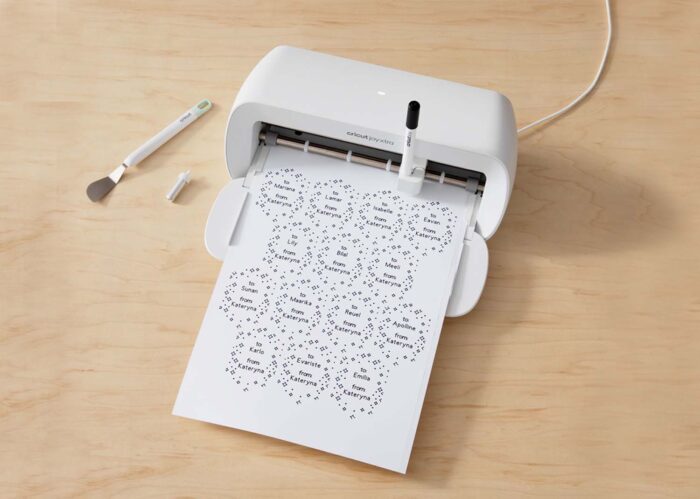 cricut joy xtra
to
Mariana
from
Kateryna
to
Lamar
from
Kateryna
to
Isabelle
from
Kateryna
to
Eavan
from
Kateryna
to
Lily
from
Kateryna
to
Bilal
from
Kateryna
to
Meeli
from
Kateryna
to
Sunan
from
Kateryna
to
Maarika
from
Kateryna
to
Reuel
from
Kateryna
to
Apolline
from
Kateryna
to
Karlo
from
Kateryna
to
Evariste
from
Kateryna
to
Emilia
from
Kateryna